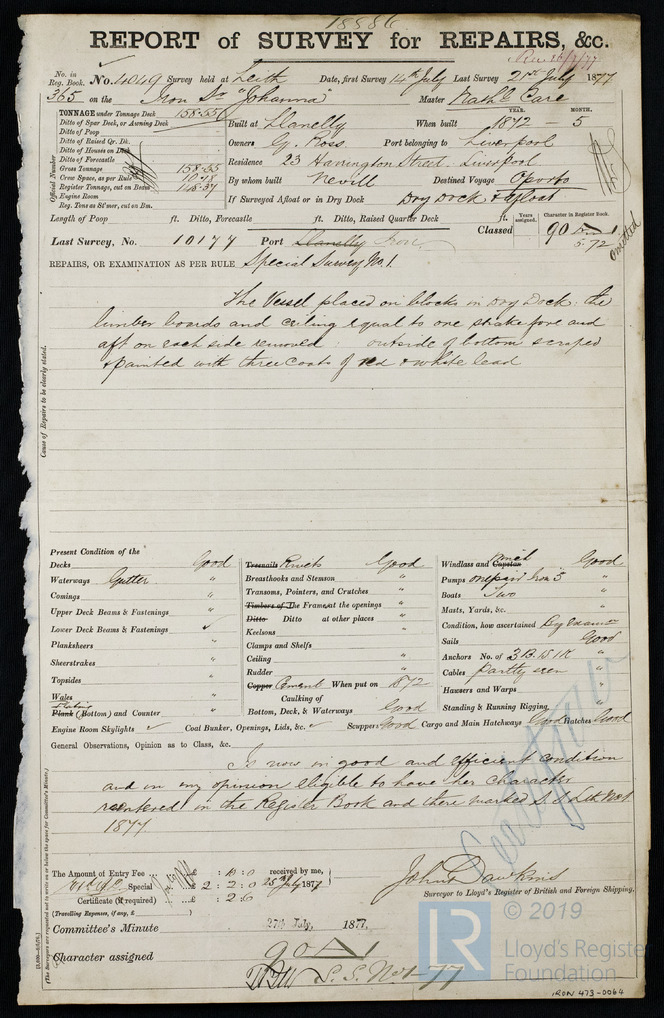 18886
REPORT of SURVEY for REPAIRS, &c.
No. in Reg. Book. No. 4049 Survey held at Leith Date, first Survey 14th July Last Survey 21st July 1877
365 on the Iron Sr "Johanna" Master Nathl Care
TONNAGE under Tonnage Deck 158.55
Ditto of Spar Deck, or Awning Deck
Ditto of Poop
Ditto of Raised Qr. Dk.
Ditto of Houses on Deck
Ditto of Forecastle
Gross Tonnage 158.55
Crew Space, as per Rule 10.18
Register Tonnage, cut on Beam
Engine Room
Reg. Tons as St'mer, cut on Bm.
Official Number
Built at Llanelly When built YEAR. 1872 MONTH. 5
Owners G. Ross Port belonging to Liverpool
Residence 23 Harrington Street Liverpool
By whom built Nevill Destined Voyage Oporto
If Surveyed Afloat or in Dry Dock Dry Dock & afloat
Length of Poop ft. Ditto, Forecastle ft. Ditto, Raised Quarter Deck ft.
Years assigned. Character in Register Book.
Classed 90 5.72
omitted
Last Survey, No. 10177 Port Llanelly Iron
REPAIRS, OR EXAMINATION AS PER RULE Special Survey No. 1.
The Vessel placed on blocks in Dry Dock: the
limber boards and ceiling equal to one strake fore and
aft on each side removed: outside of bottom scraped
& painted with three coats of red & white lead
Cause of Repairs to be clearly stated.
Present Condition of the
Decks Good
Waterways Gutter "
Comings "
Upper Deck Beams & Fastenings "
Lower Deck Beams & Fastenings
Planksheers "
Sheerstrakes "
Topsides "
Wales "
Plank (Bottom) and Counter "
Engine Room Skylights
Treenails Rivets Good
Breasthooks and Stemson "
Transoms, Pointers, and Crutches "
Timbers of The Frames, at the openings "
Ditto Ditto at other places "
Keelsons "
Clamps and Shelfs "
Ceiling "
Rudder "
Copper Cement When put on 1872
Caulking of
Bottom, Deck, & Waterways Good
Coal Bunker, Openings, Lids, &c.
Scuppers Good Cargo and Main Hatchways Good Hatches Good
Windlass and Capstan Winch Good
Pumps one pair Iron 3 "
Boats Two "
Masts, Yards, &c. "
Condition, how ascertained By Examn
Sails Good
Anchors No. of 3 B. 1 S. 1 K "
Cables Partly seen "
Hawsers and Warps "
Standing & Running Rigging "
General Observations, Opinion as to Class, &c.
Is now in good and efficient condition
and in my opinion eligible to have her character
reentered in the Register Book and there marked S.S. Lth No 1
1877.
The Amount of Entry Fee £ : 10 : 0 received by me,
Special £ 2 : 2 : 0 25th July 1877
Certificate (if required) : 2.6
(Travelling Expenses, if any, £ )
John Dawkins
Surveyor to Lloyd's Register of British and Foreign Shipping.
Committee's Minute 27th July, 1877.
Character assigned 90 A 1
S.S. No 1-77
(The Surveyors are requested not to write on or below the space for Committee's Minute.)
© 2019
LR Lloyd's Register Foundation
IRON 473-0064